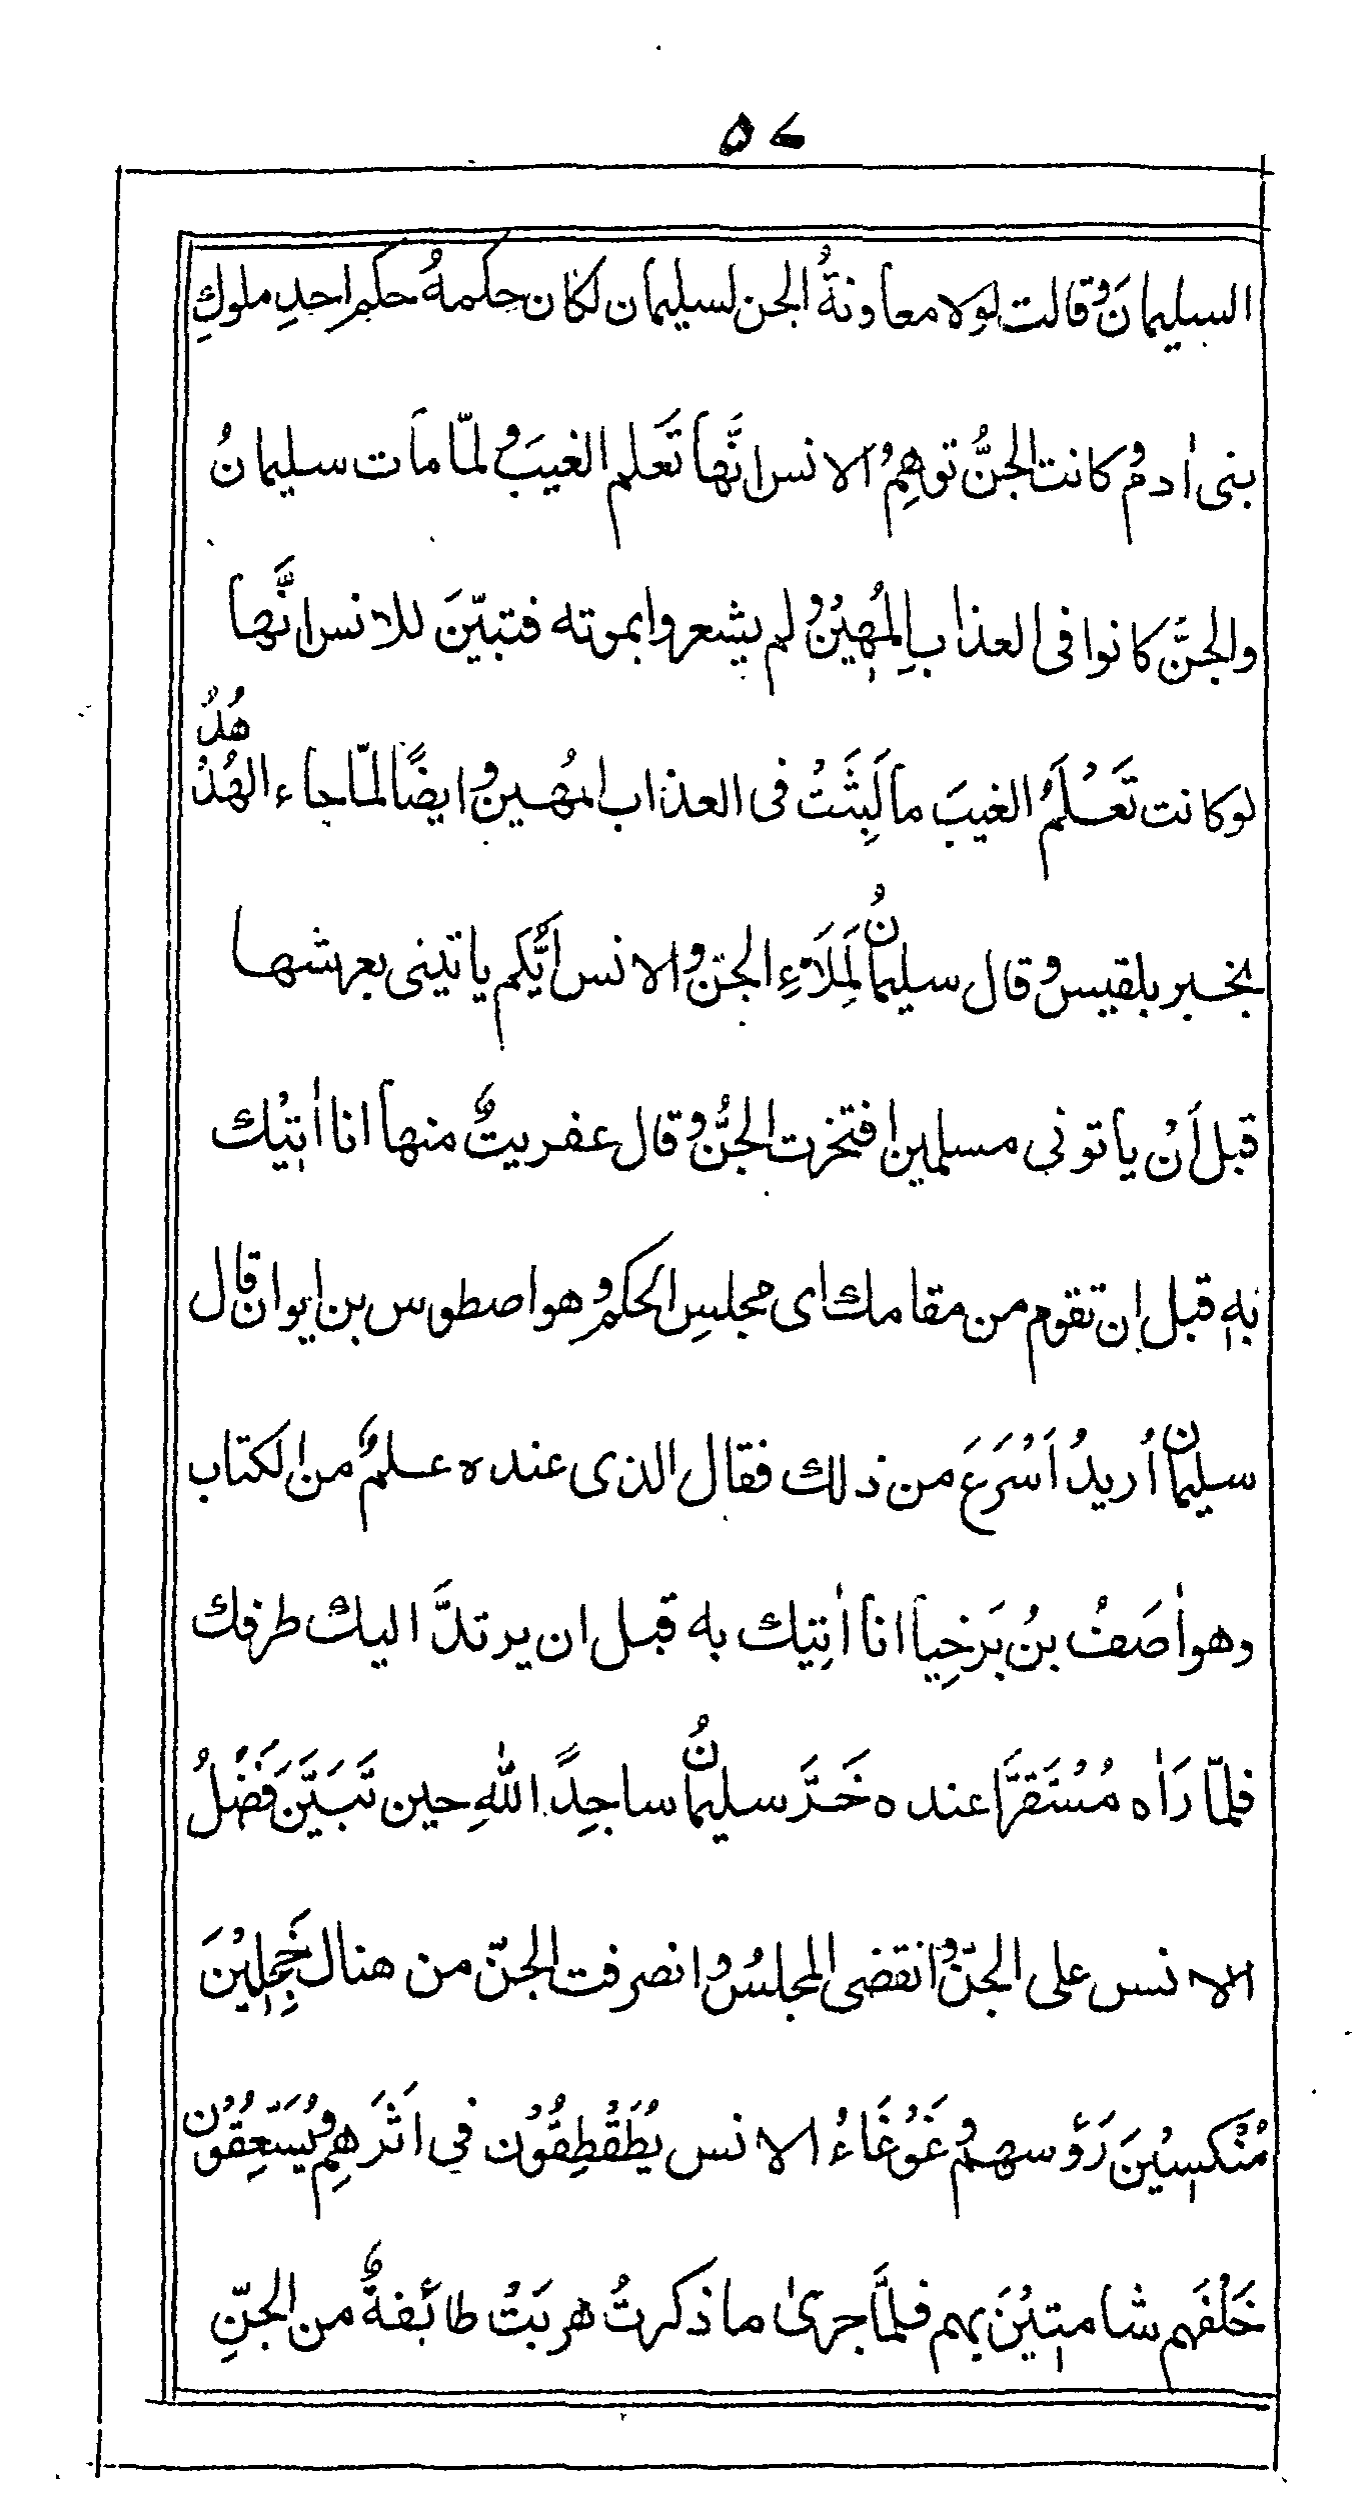 ٥٧
السليمانَ وقالت لولا معاونةُ الجن لسليمان لكان حكمهُ حكم احدِ ملوكِ
بنى اٰدم وكانت الجنُّ توهِمُ الانس انَّها تَعلم الغيبَ ولمّا مات سليمانُ
والجنَّ كانوا فى العذابِ المُهِيْنِ ولم يشعروا بموته فتبيّنَ للانس انَّها
لو كانت تَعْلَمُ الغيبَ ما لَبِثَتْ فى العذاب المُهين وايضًا لمّا جاء الهُدْهُدُ
بخبر بلقيس وقال سليمانُ لِمَلَاءِ الجنّ والانس ايُّكم ياتينى بعرشها
قبل اَنْ ياتونى مسلمين افتخرت الجنُّ وقال عفريتٌ منها انا اٰتِيْك
بهٖ قبل ان تقوم من مقامك اى مجلسِ الحكم وهو اصطوس بن ايوان قال
سليمان اُريدُ اَسْرَعَ من ذلك فقال الذى عنده علمٌ من الكتاب
وهو اٰصَفُ بنُ بَرَخِيا انا اٰتِيك به قبل ان يرتدَّ اليك طرفك
فلمّا رَاٰه مُسْتَقرَّا عنده خَرَّ سليمانُ ساجِدًا للّٰهِ حين تَبَيَّنَ فَضْلُ
الانس على الجنّ وانقضى المجلسُ وانصرفت الجنّ من هنال خَجِلِيْنَ
مُنْكسِيْنَ رَؤسهم وغَوْغَاءُ الانس يُطَقْطِقُوْن فى اَثَرَهِم ويُسَتِّعِقُوْن
خَلْفَهم شامتِيْنَ بهم فلمَّا جرىٰ ما ذكرتُ هربَتْ طائفةٌ من الجنّ